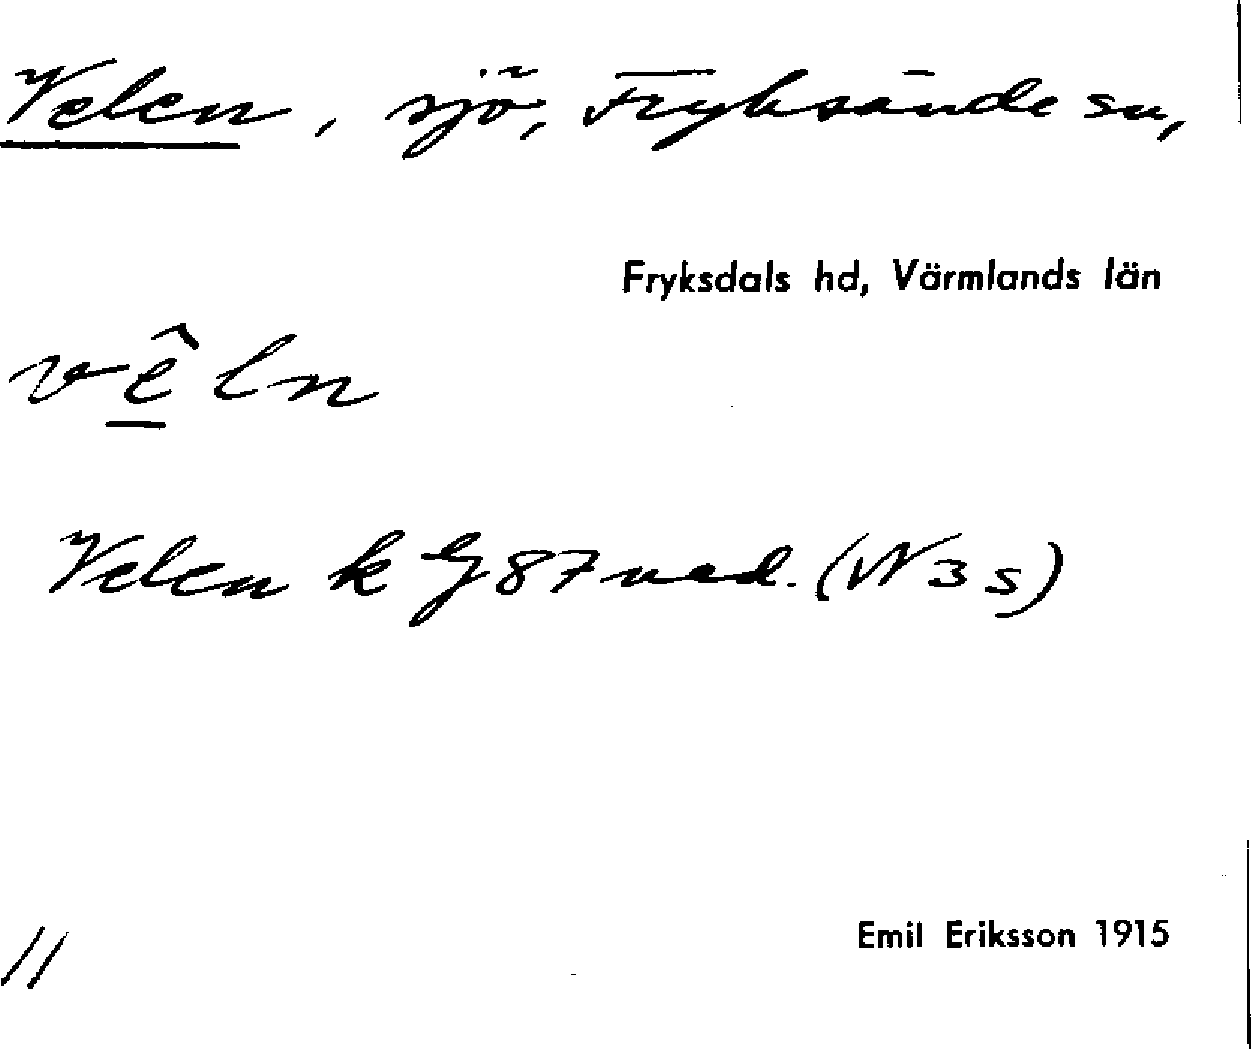 Velen, sjö, Fryksände sn,
Fryksdals hd, Värmlands län
vêln
Velen k G 87 ned. (W 3 s)
Emil Eriksson 1915